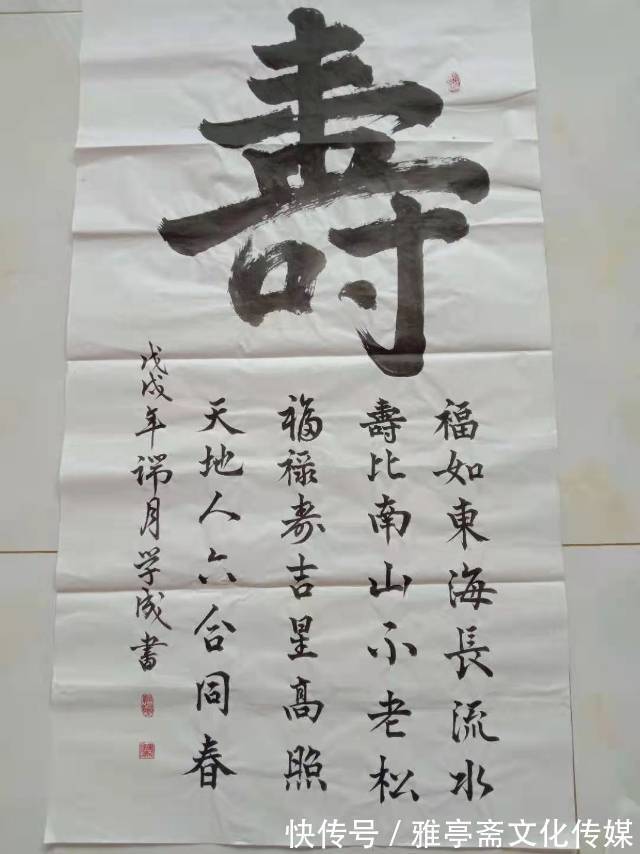 壽
福如東海長流水
壽比南山不老松
福禄寿吉星高照
天地人六合同春
戊戌年端月学成書
快传号/雅亭斋文化传媒